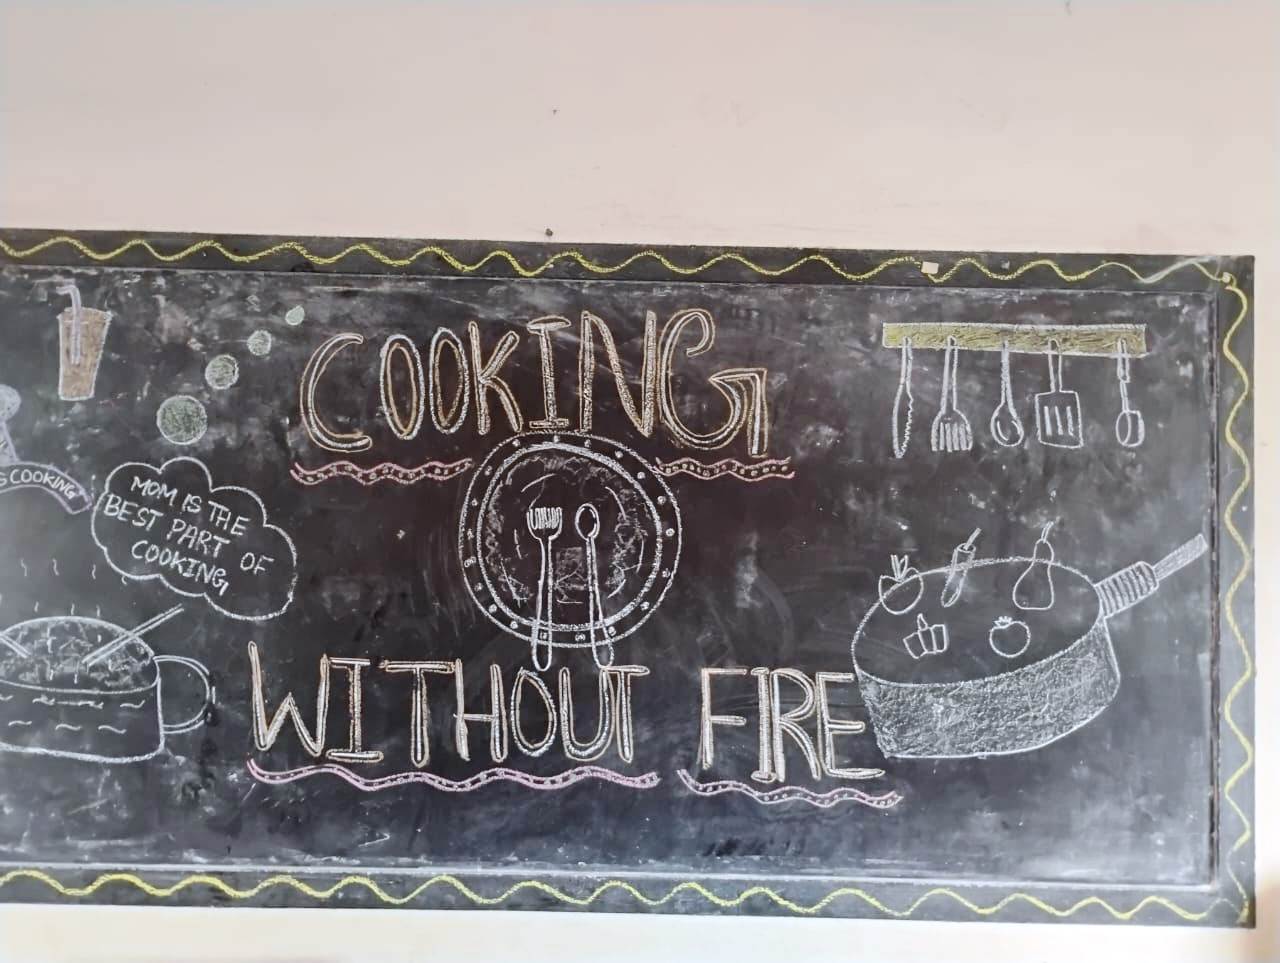 COOKING
WITHOUT FIRE
COOKING
MOM IS THE
BEST PART OF
COOKING